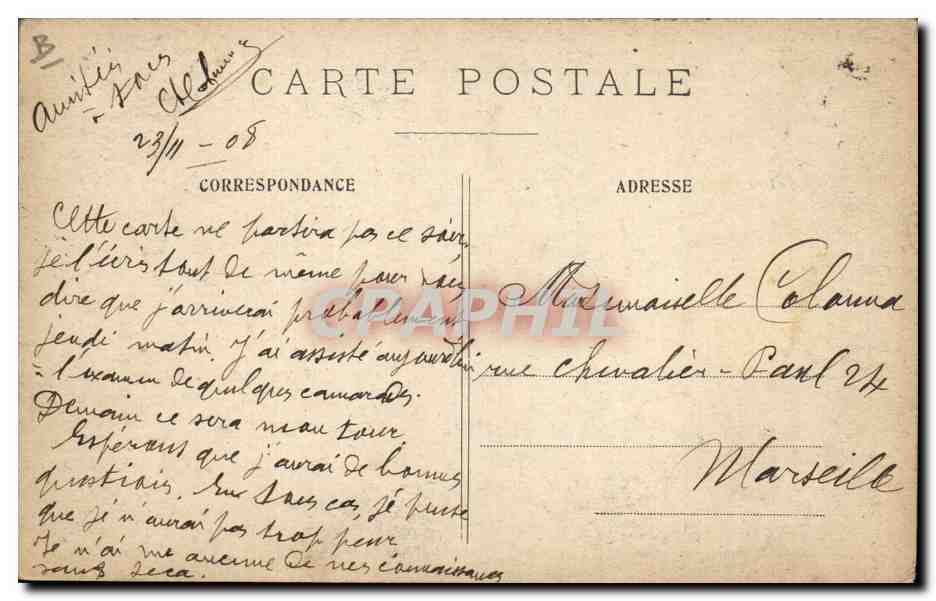 B
Amitiés
à tous
23/11 - 08
CARTE POSTALE
CORRESPONDANCE
Cette carte ne partira pas ce soir,
je l'écris tout de même pour vous
dire que j'arriverai probablement
jeudi matin. J'ai assisté aujourd'hui
à l'examen de quelques camarades.
Demain ce sera mon tour.
Espérons que j'aurai de bonnes
questions. En tous cas, je pense
que je n'aurai pas trop peur
Je n'ai vu aucune de nos connaissances
ADRESSE
Mademoiselle Colonna
rue Chevalier-Paul 24
Marseille
CPAPHIL